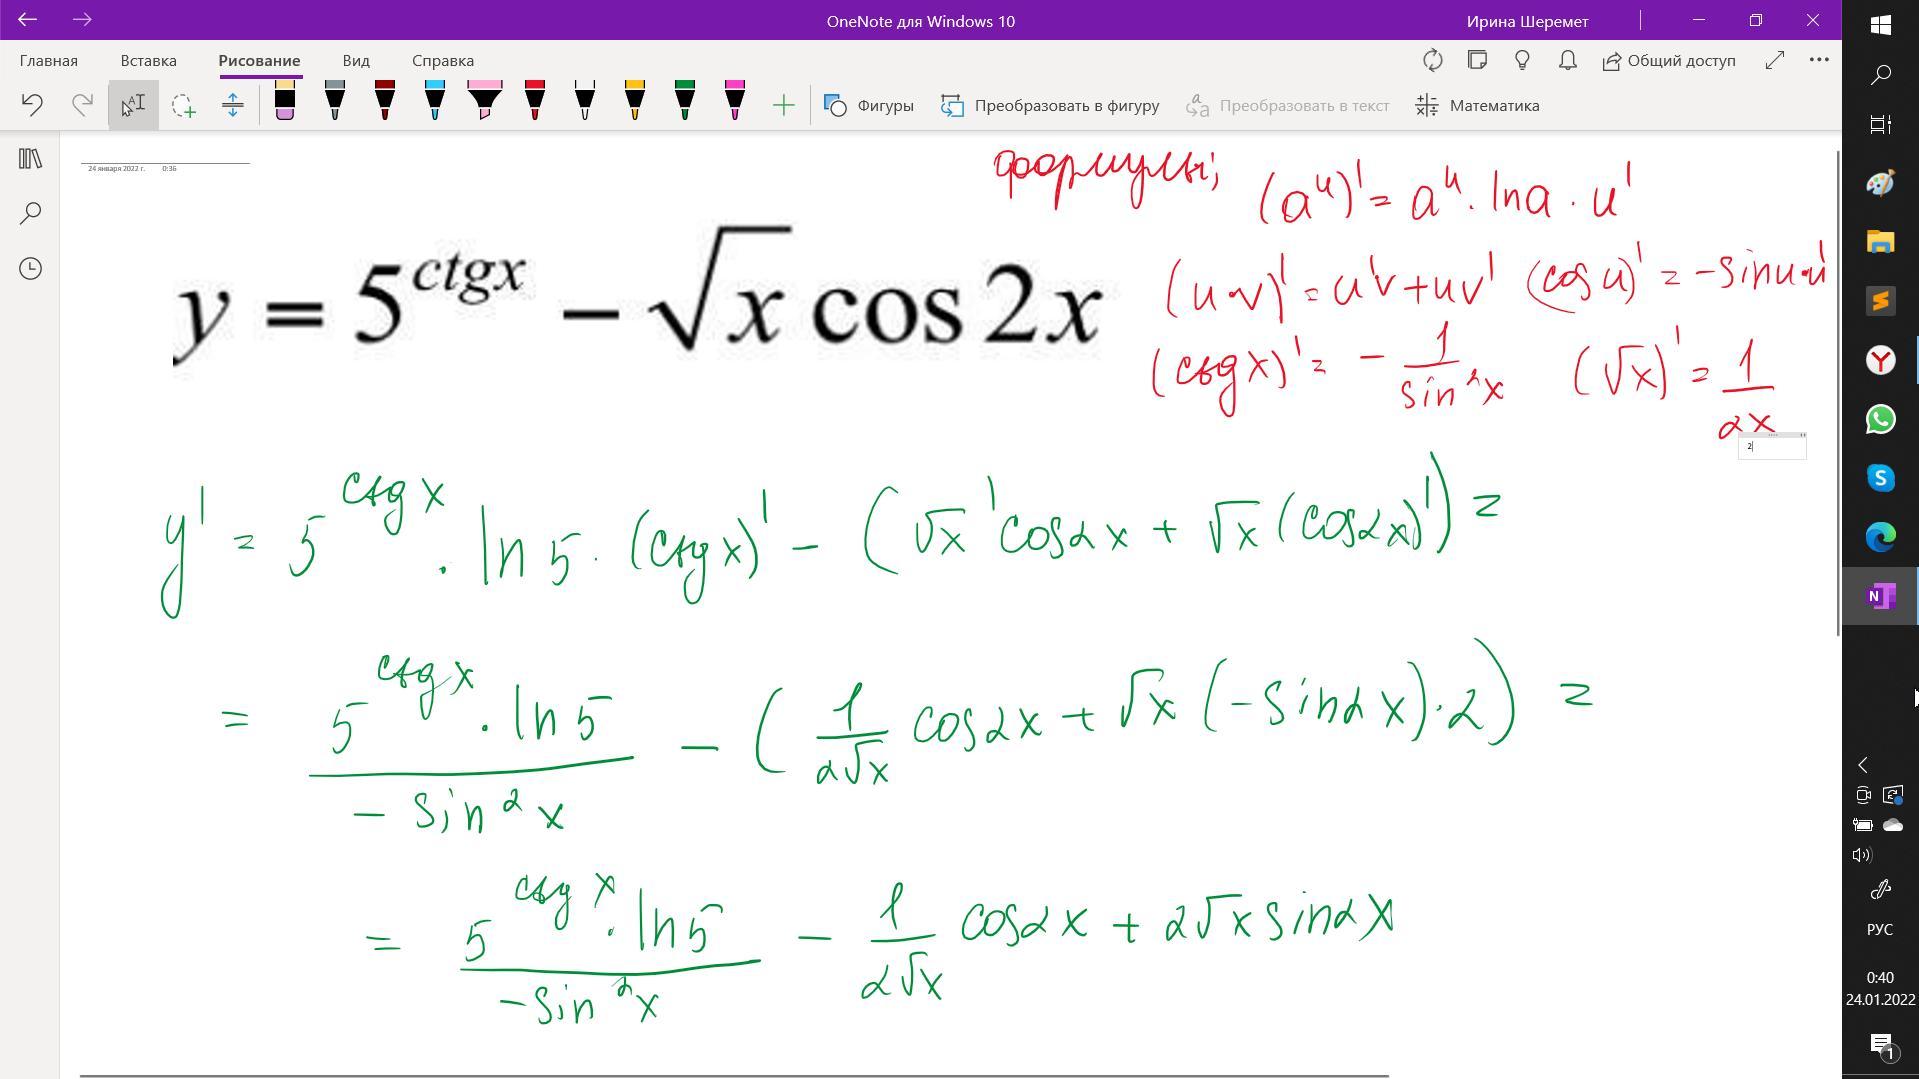 OneNote для Windows 10
Ирина Шеремет
Главная Вставка Рисование Вид Справка
Общий доступ
Фигуры Преобразовать в фигуру Преобразовать в текст Математика
24 января 2022 г. 0:36
формулы; (a^u)' = a^u · ln a · u'
(u·v)' = u'v + uv' (cos u)' = -sin u·u'
(ctg x)' = - 1/sin²x (√x)' = 1/2x
2
y = 5^ctgx − √x cos 2x
y' = 5^ctg x · ln 5 · (ctg x)' - (√x' cos2x + √x (cos2x)') =
= 5^ctg x · ln 5 / -sin²x - (1/2√x cos2x + √x (-sin2x)·2) =
= 5^ctg x · ln 5 / -sin²x - 1/2√x cos2x + 2√x sin2x
РУС
0:40
24.01.2022
1